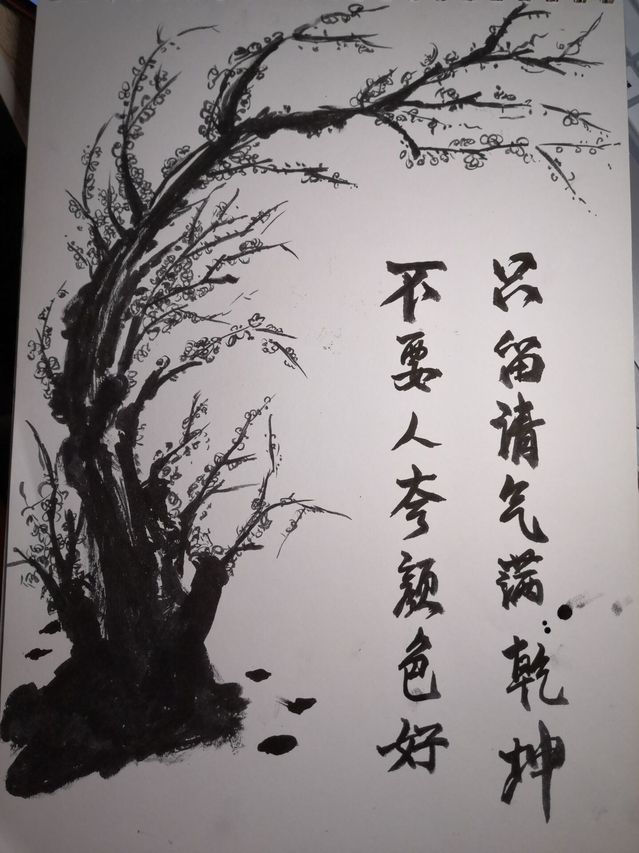 不要人夸颜色好
只留请气满乾坤